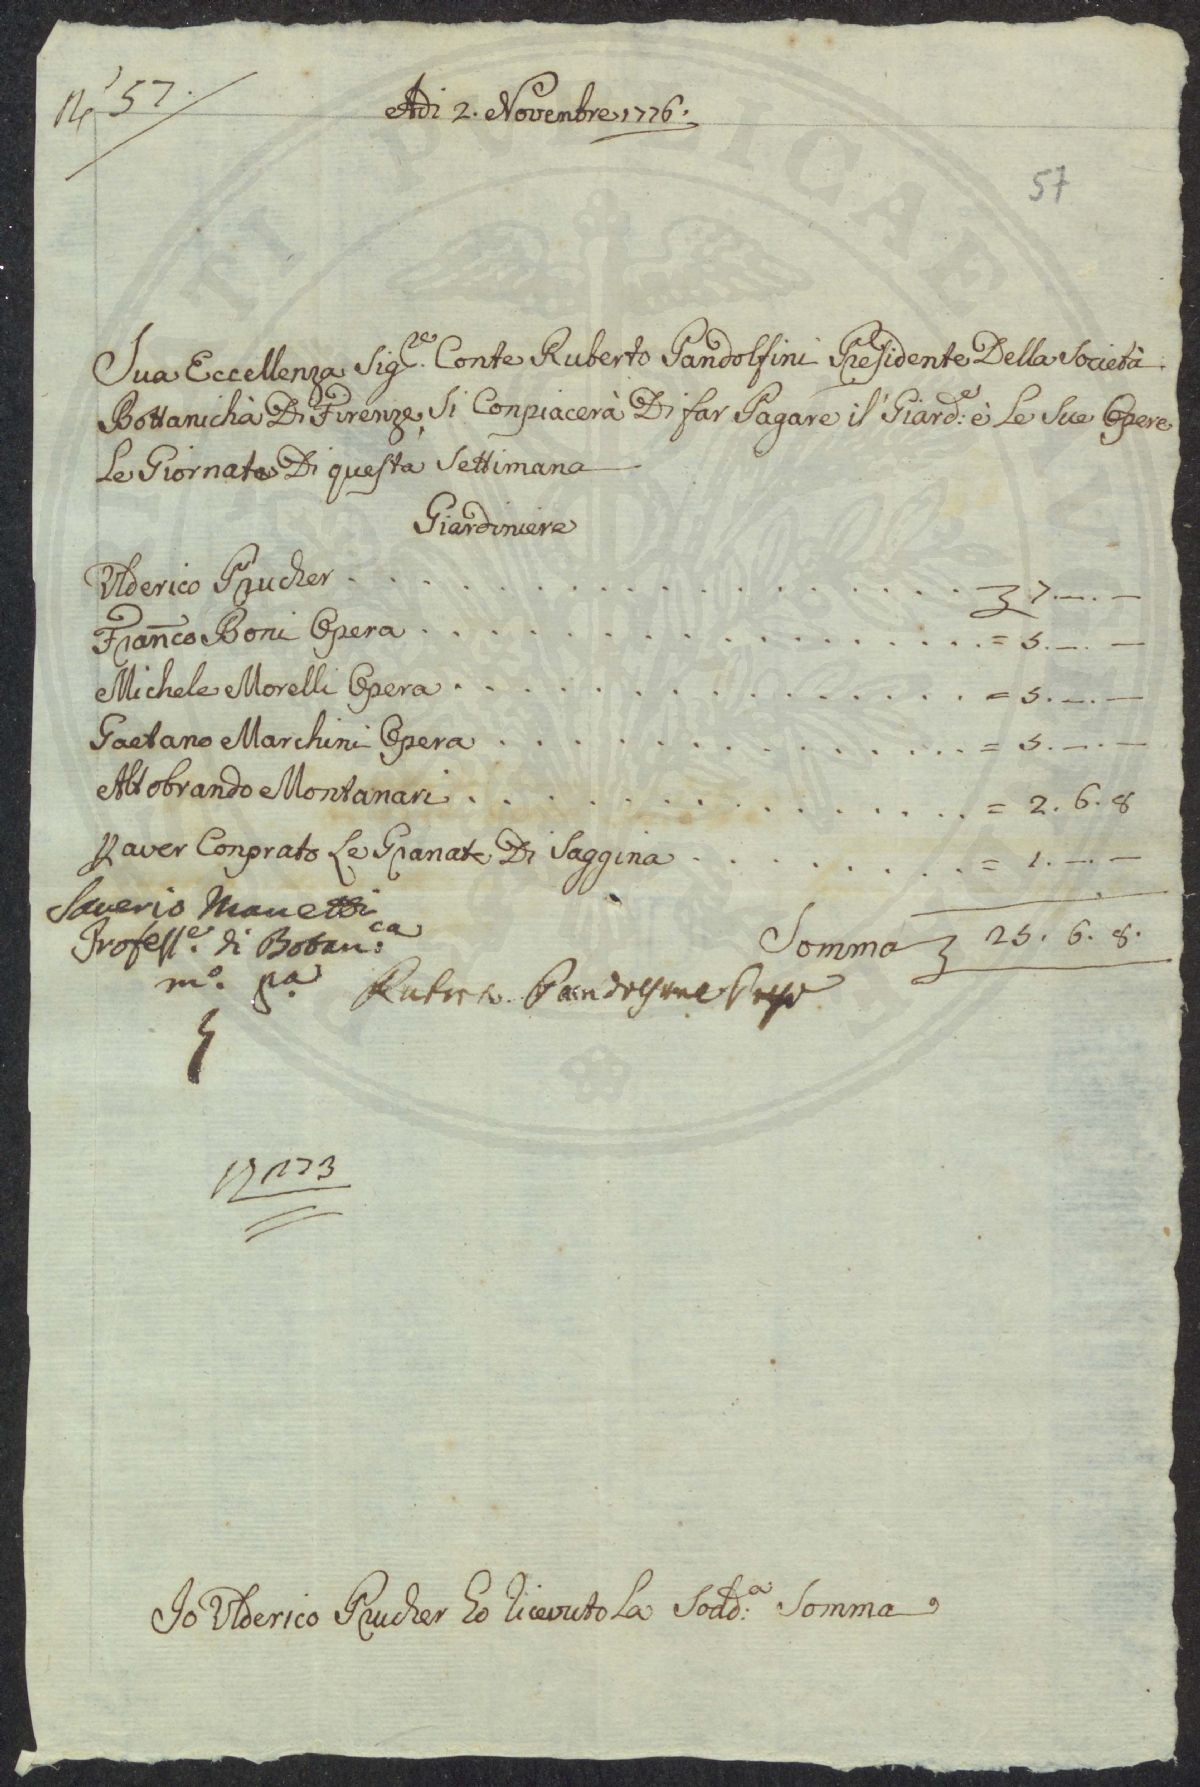 N° 57.
Adi 2. Novenbre 1776.
57
Sua Eccellenza Sig.re Conte Ruberto Pandolfini Presidente Della Società
Bottanichà Di Firenze, Si Conpiacerà Di far Pagare il Giard.e è Le Sue Opere
Le Giornate Di questa Settimana
Giardiniere
Ulderico Prucher . . . . . . . . . . . . . . . . . 7.—.—
Franco Boni Opera . . . . . . . . . . . . . . . . = 5.—.—
Michele Morelli Opera . . . . . . . . . . . . . . . = 5.—.—
Gaetano Marchini Opera . . . . . . . . . . . . . . = 5.—.—
Altobrando Montanari . . . . . . . . . . . . . . . = 2.6.8
P aver Conprato Le Granate Di Saggina . . . . . . . . = 1.—.—
Saverio Manetti
Profess.e di Botan.ca
m.o p.a
Somma 25.6.8.
Ruberto Pandolfini Presid
N 173
Io Ulderico Prucher ho ricevuto La Sodd.a Somma